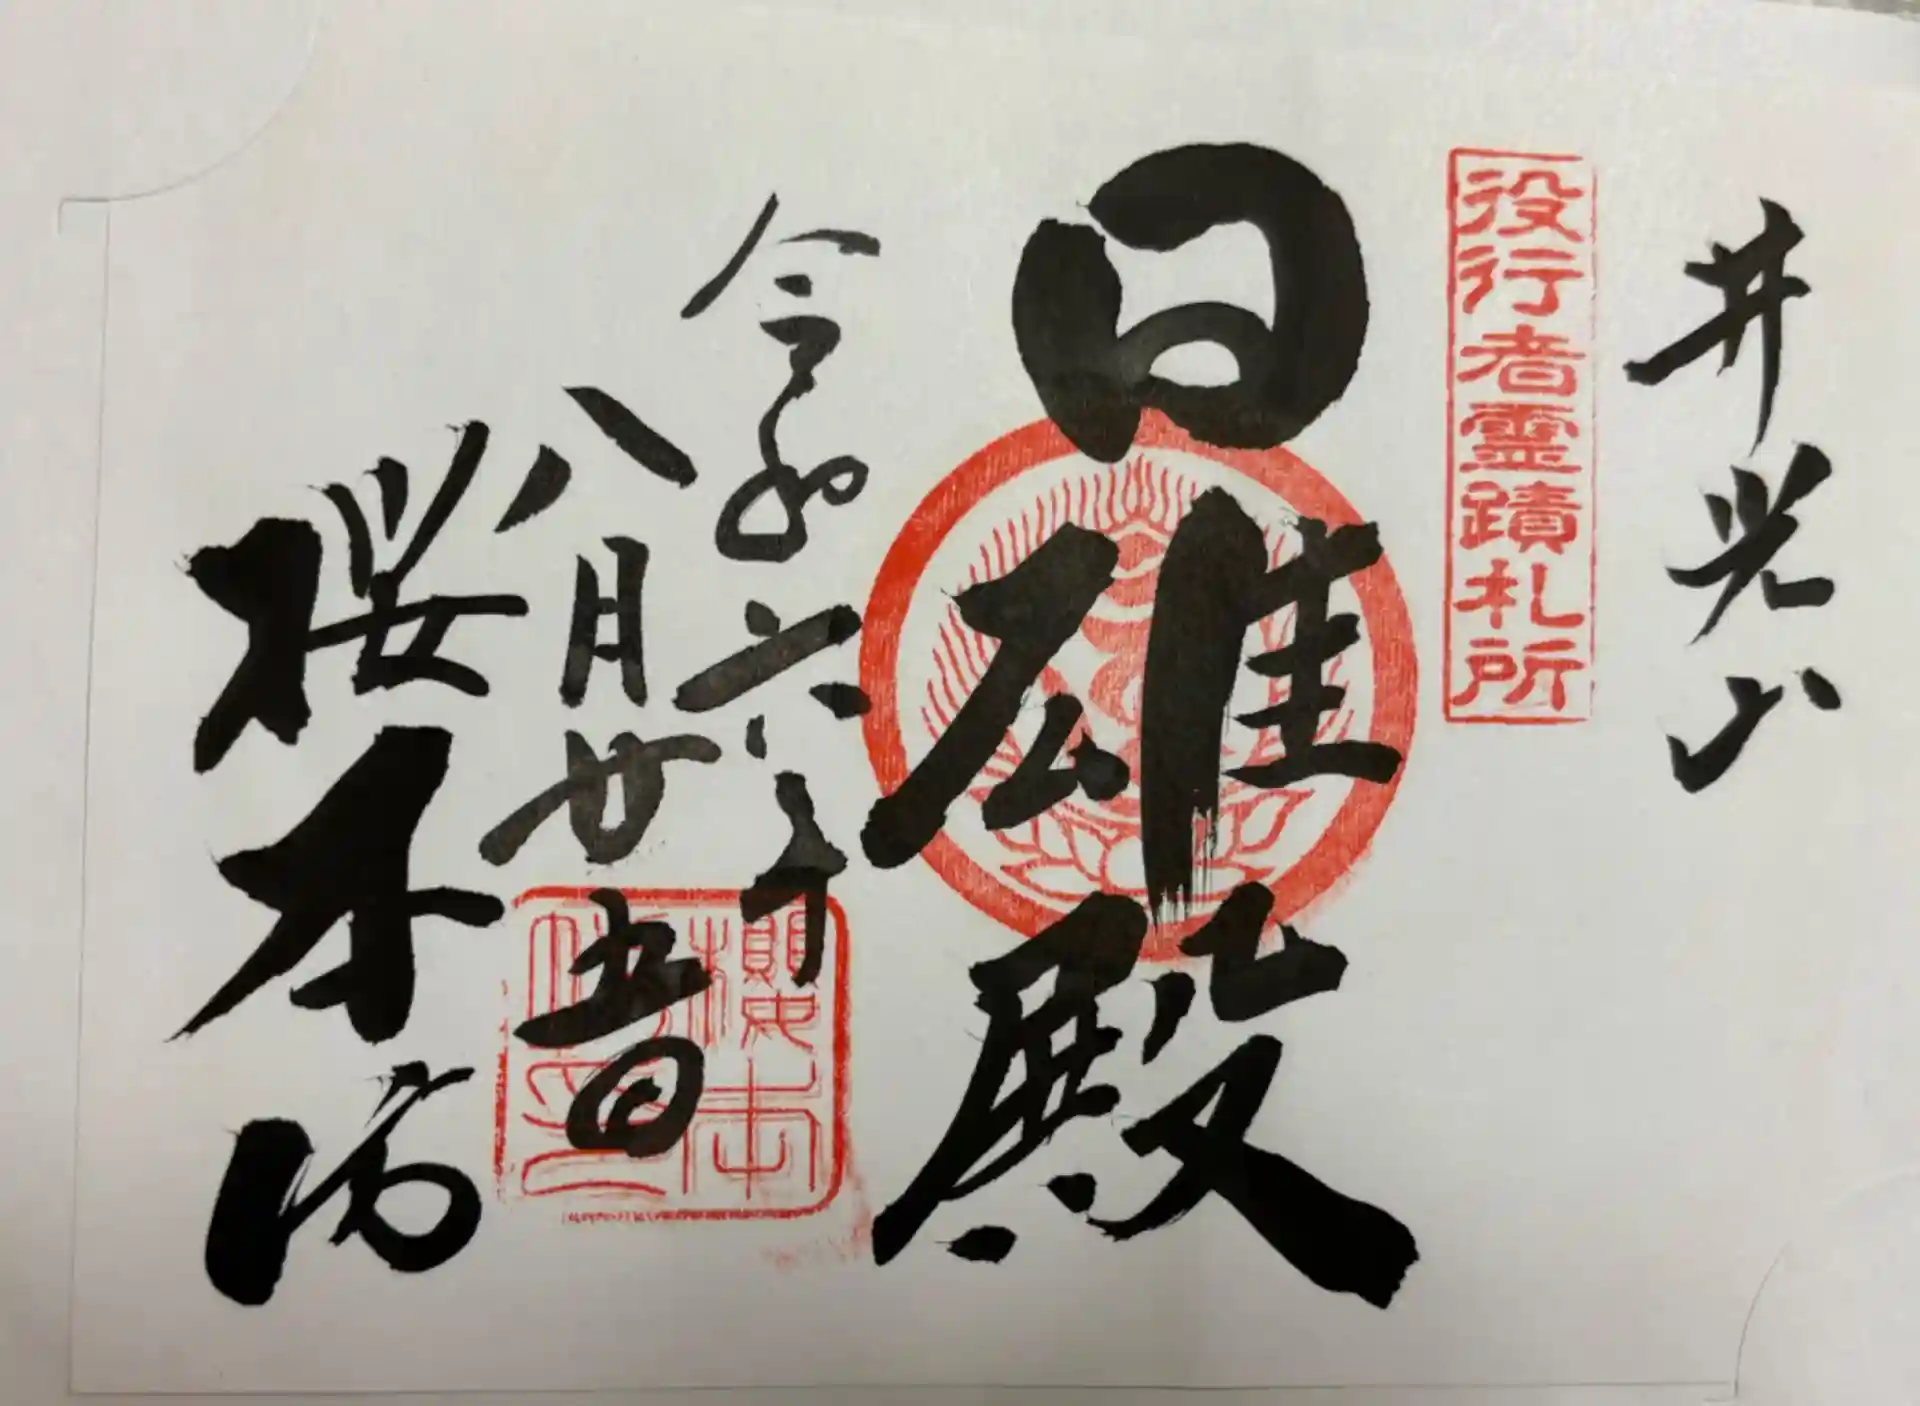 井光山
役行者霊蹟札所
日雄殿
令和六年
八月廿五日
櫻本坊
櫻本坊印